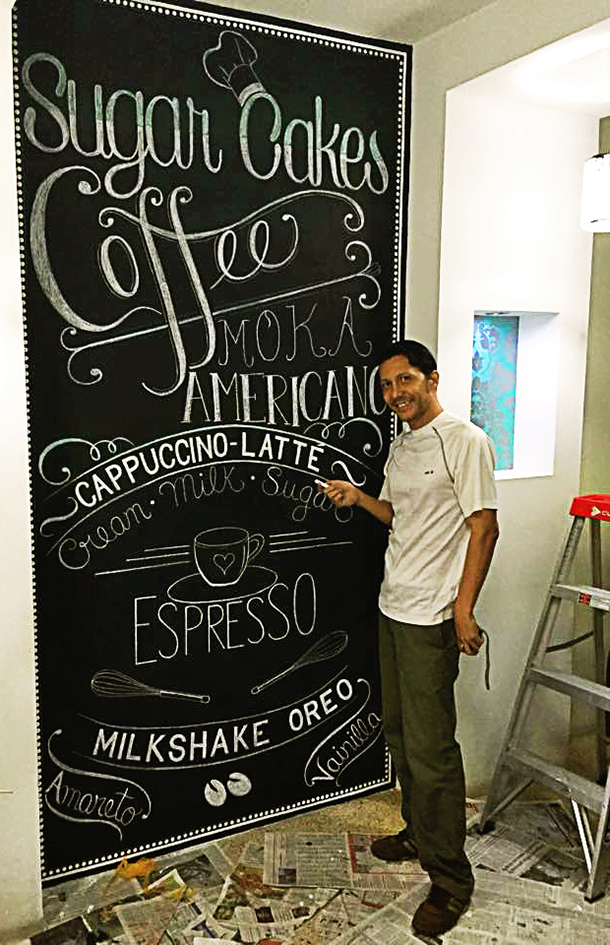 Sugar Cakes
Coffee
MOKA
AMERICANO
CAPPUCCINO-LATTÉ
Cream · Milk · Sugar
ESPRESSO
MILKSHAKE OREO
Amareto
Vainilla